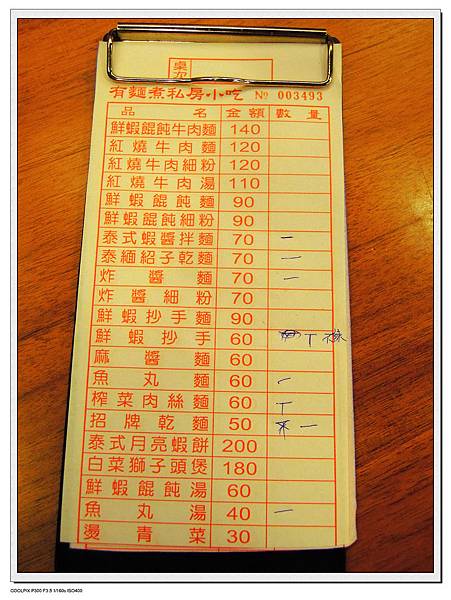 桌次
有麵煮私房小吃 № 003493
品名 金額 數量
鮮蝦餛飩牛肉麵 140
紅燒牛肉麵 120
紅燒牛肉細粉 120
紅燒牛肉湯 110
鮮蝦餛飩麵 90
鮮蝦餛飩細粉 90
泰式蝦醬拌麵 70 一
泰緬紹子乾麵 70 一
炸醬麵 70 一
炸醬細粉 70
鮮蝦抄手麵 90
鮮蝦抄手 60 丅
麻醬麵 60
魚丸麵 60 一
榨菜肉絲麵 60 丅
招牌乾麵 50 一
泰式月亮蝦餅 200
白菜獅子頭煲 180
鮮蝦餛飩湯 60
魚丸湯 40 一
燙青菜 30
COOLPIX P300 F3.5 1/160s ISO400